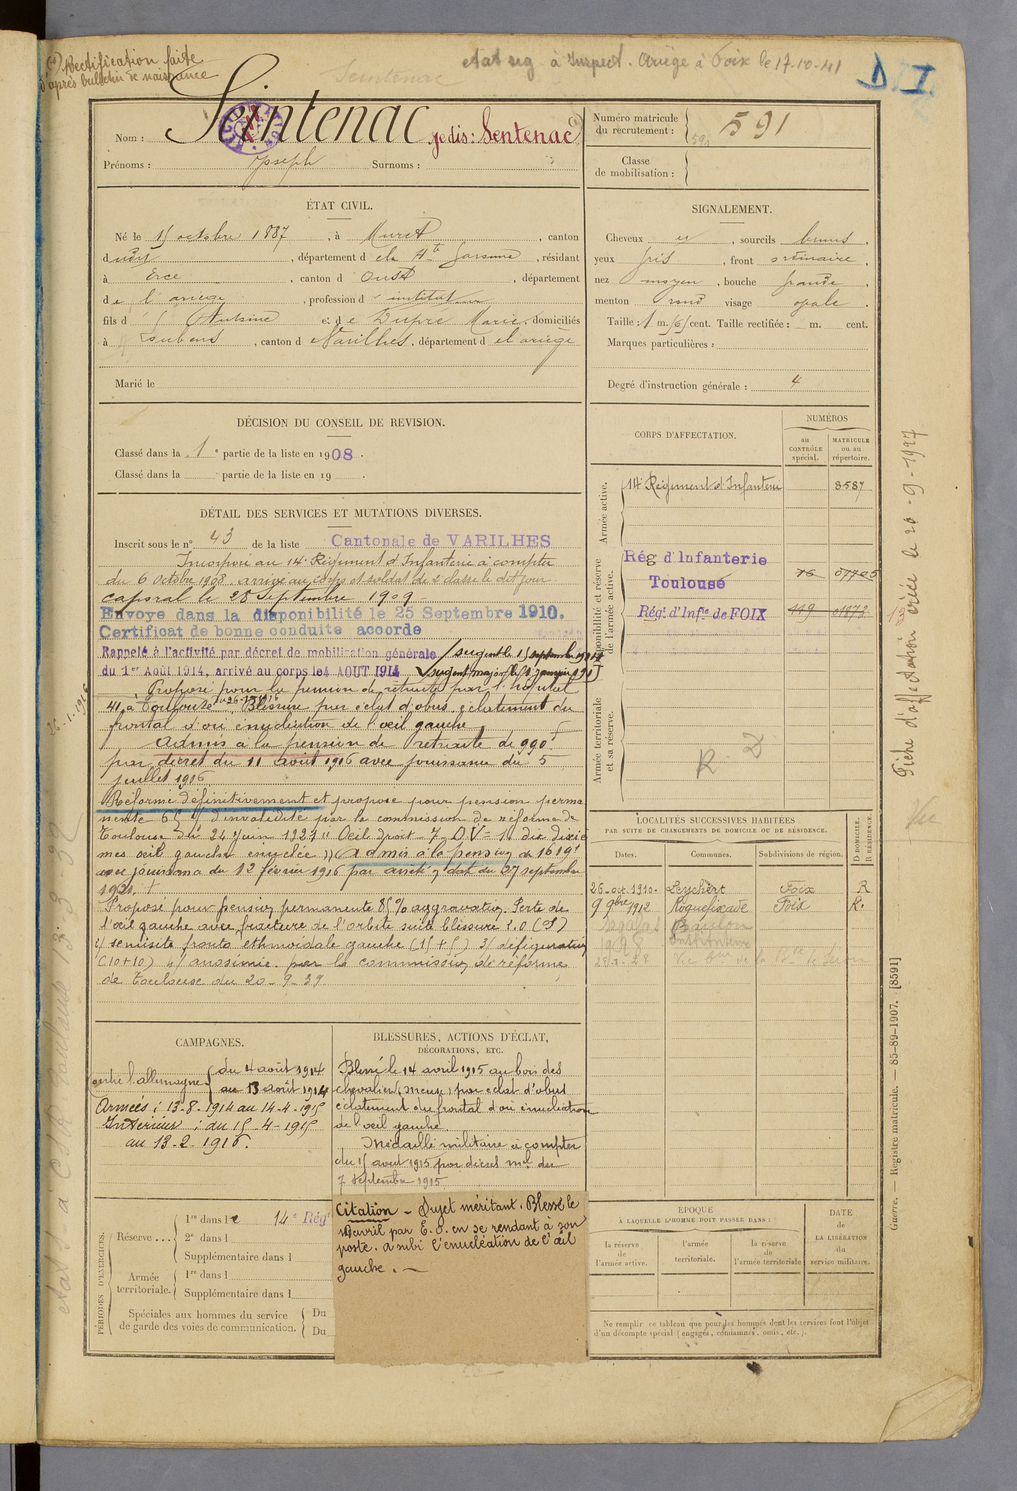 Rectification faite
d'après bulletin de naissance
Sentenac
etat seg à Inspect. Ariège à Foix le 17-10-41
D. I.
Nom : Seintenac je dis : Sentenac
Prénoms : Joseph Surnoms :
Numéro matricule
du recrutement : 591
Classe
de mobilisation :
ÉTAT CIVIL.
Né le 15 octobre 1887, à Muret, canton
dudit, département de la Hte Garonne, résidant
à Erce, canton d'Oust, département
de l'ariège, profession d'instituteur
fils d Antoine et de Dupré Marie, domiciliés
à Loubens, canton de Varilhes, département de l'ariège
Marié le
SIGNALEMENT.
Cheveux , sourcils bruns,
yeux gris, front ordinaire,
nez moyen, bouche grande,
menton rond visage ovale.
Taille : 1 m. 65 cent. Taille rectifiée : m. cent.
Marques particulières :
Degré d'instruction générale : 4
DÉCISION DU CONSEIL DE REVISION.
Classé dans la 1e partie de la liste en 1908.
Classé dans la partie de la liste en 19 .
DÉTAIL DES SERVICES ET MUTATIONS DIVERSES.
Inscrit sous le n° 43 de la liste Cantonale de VARILHES
Incorporé au 14e Régiment d'Infanterie à compter
du 6 Octobre 1908. arrivé au corps et soldat de 2e classe le dit jour.
caporal le 28 septembre 1909
Envoyé dans la disponibilité le 25 Septembre 1910.
Certificat de bonne conduite accordé
Rappelé à l'activité par décret de mobilisation générale
du 1er Août 1914, arrivé au corps le 4 AOUT 1914
sergent le 15 septembre 1914
Sergent major le
Proposé pour la pension de retraite par l'hôpital
41 à Toulouse Blessure par éclat d'obus, éclatement du
frontal d'où énucléation de l'oeil gauche
admis à la pension de retraite de 990 f
par décret du 11 août 1916 avec jouissance du 5
juillet 1916
Réformé définitivement et proposé pour pension perma
nente 65 % d'invalidité par la commission de réforme de
Toulouse du 24 juin 1921 " Oeil droit. 7 D.V = 10 dix dixiè
mes oeil gauche énucléé )) admis à la pension de 1619 f
avec jouissance du 12 février 1916 par arrêté en dat du 27 septembre
1921.
Proposé pour pension permanente 85 % aggravation. Perte de
l'oeil gauche avec fracture de l'orbite suite blessure
2/ sinusite fronto ethmoïdale gauche (15 + 5) 3/ défiguration
(10+10) 4/ anosmie par la commission de réforme
de Toulouse du 20-9-39
CORPS D'AFFECTATION.
NUMÉROS
au
CONTRÔLE
spécial.
MATRICULE
ou au
répertoire.
Armée active.
14e Régiment d'Infanterie 8587
Disponibilité et réserve
de l'armée active.
Rég d'Infanterie
Toulouse
Régt d'Infie de FOIX
Armée territoriale
et sa réserve.
R D
Fiche d'affectation créée le 20-9-1927
Vu
LOCALITÉS SUCCESSIVES HABITÉES
PAR SUITE DE CHANGEMENTS DE DOMICILE OU DE RÉSIDENCE.
Dates. Communes. Subdivisions de région.
D. DOMICILE.
R. RÉSIDENCE.
26-oct. 1910- Leychert Foix R
9 9bre 1912 Roquefixade Foix R.
CAMPAGNES.
contre l'allemagne du 4 août 1914
au 13 août 1914
Armées : 13-8-1914 au 14-4-1915
Intérieur : du 15-4-1915
au 13-2-1916.
BLESSURES, ACTIONS D'ÉCLAT,
DÉCORATIONS, ETC.
Blessé le 14 avril 1915 au bois des
chevaliers (meuse) par éclat d'obus
éclatement du frontal d'où énucléation
de l'oeil gauche.
Médaille militaire à compter
du 15 août 1915 par décret mel du
7 septembre 1915
Citation - Sujet méritant. Blessé le
14 avril par E. O. en se rendant à son
poste. a subi l'énucléation de l'oeil
gauche. -
PÉRIODES D'EXERCICES.
Réserve... 1re dans le 14e Rég
2e dans l
Supplémentaire dans l
Armée
territoriale. 1re dans l
Supplémentaire dans l
Spéciales aux hommes du service
de garde des voies de communication. Du
Du
EPOQUE
À LAQUELLE L'HOMME DOIT PASSER DANS :
la réserve
de
l'armée active.
l'armée
territoriale.
la réserve
de
l'armée territoriale
DATE
de
LA LIBÉRATION
du
service militaire.
Ne remplir ce tableau que pour les hommes dont les services font l'objet
d'un décompte spécial (engagés, condamnés, omis, etc.).
Guerre. — Registre matricule. — 85-89-1907. [8591]